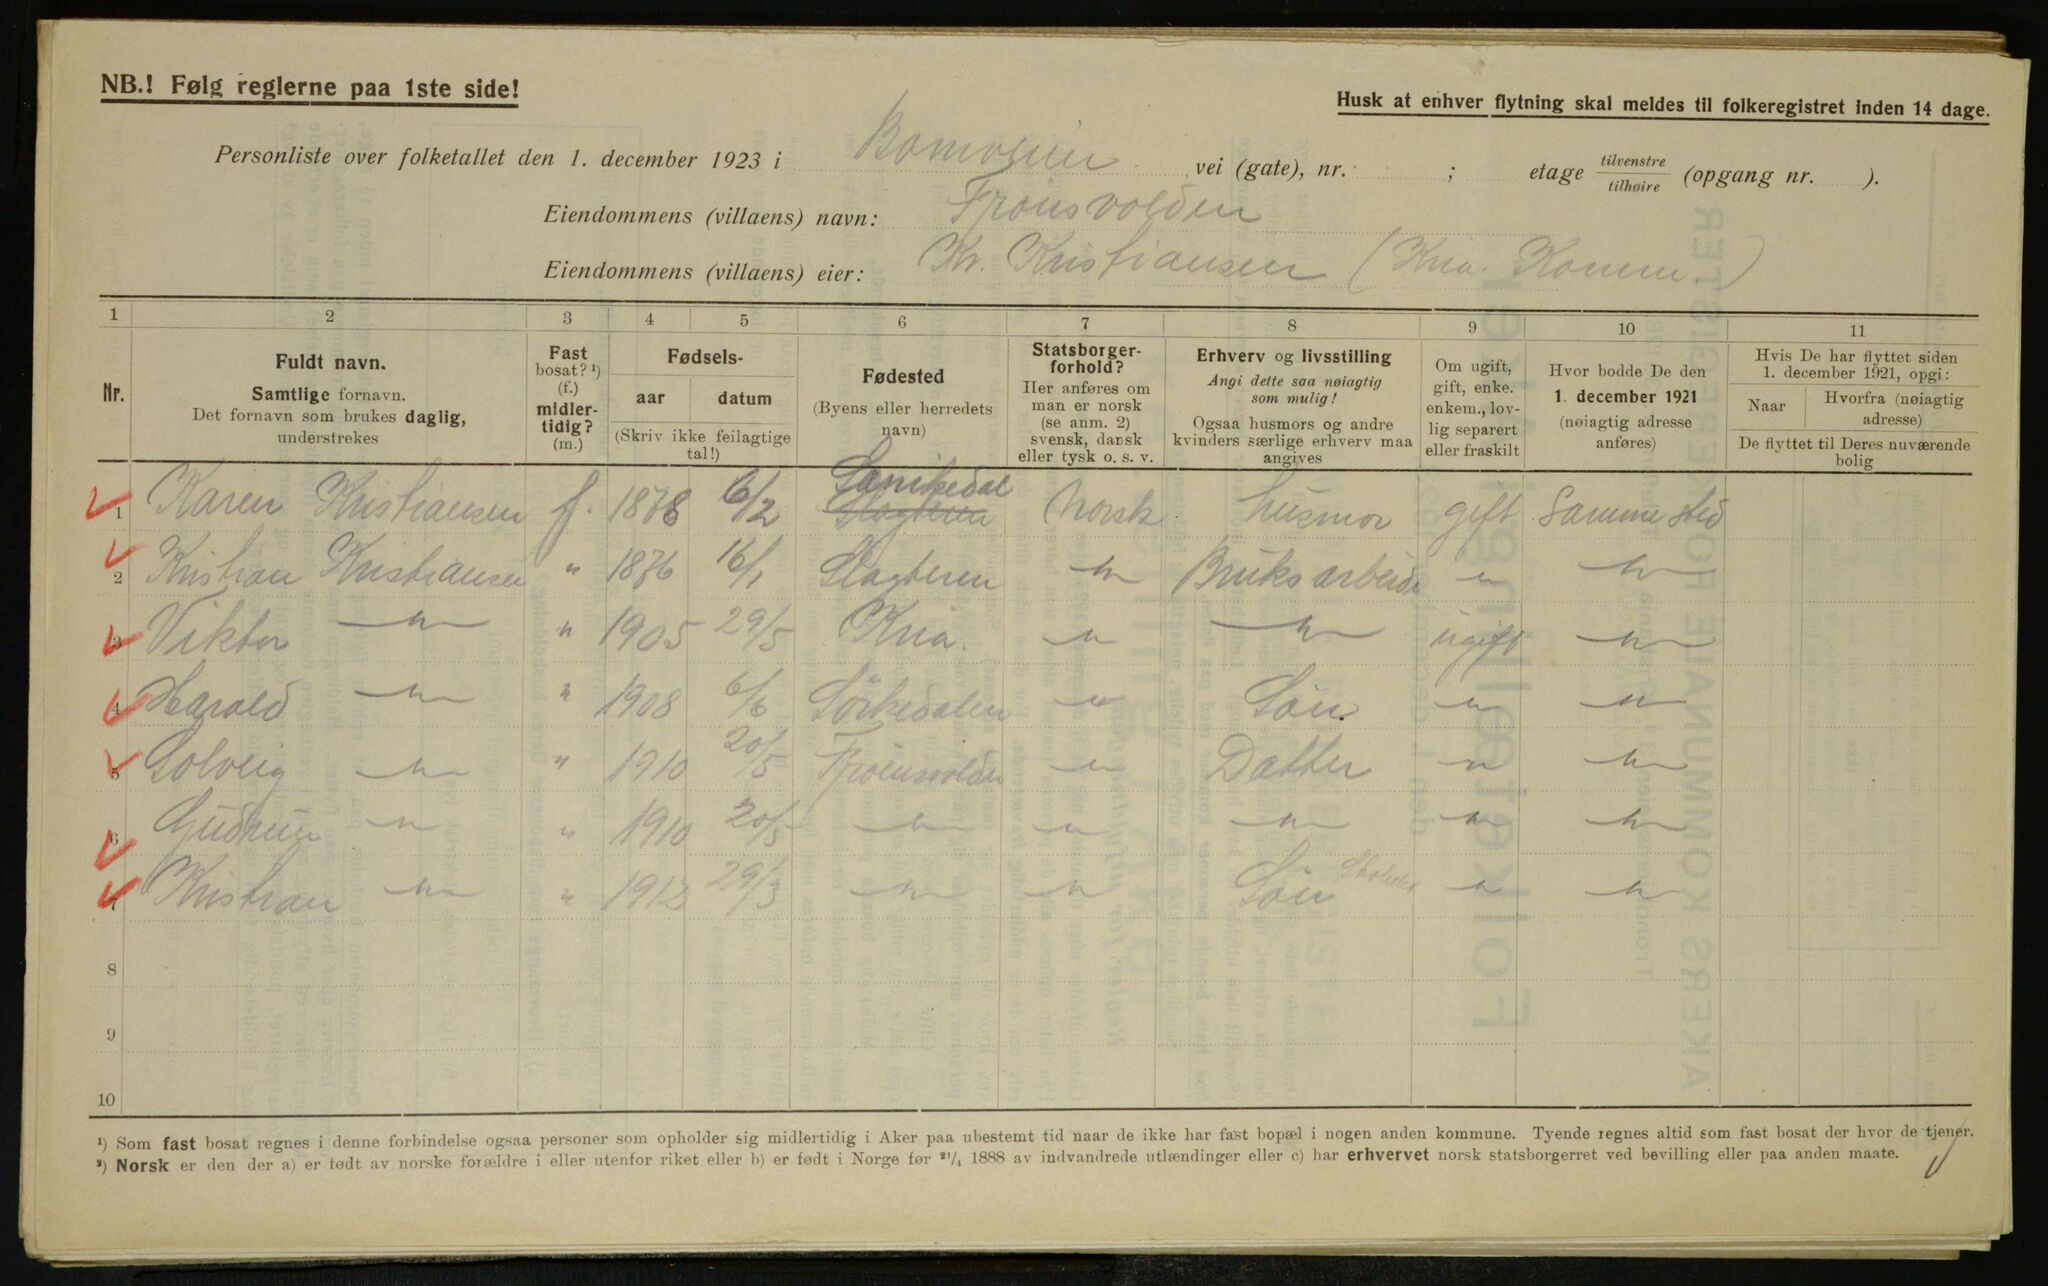 NB.! Følg reglerne paa 1ste side!
Husk at enhver flytning skal meldes til folkeregistret inden 14 dage.
Personliste over folketallet den 1. december 1923 i Bomveien vei (gate), nr. ; etage tilvenstre/tilhøire (opgang nr. ).
Eiendommens (villaens) navn: Fronsvolden
Eiendommens (villaens) eier: Kr. Kristiansen (Kria. Komm.)
1 2 3 4 5 6 7 8 9 10 11
Nr.
Fuldt navn.
Samtlige fornavn.
Det fornavn som brukes daglig,
understrekes
Fast
bosat? ¹)
(f.)
midler-
tidig?
(m.)
Fødsels-
aar datum
(Skriv ikke feilagtige
tal!)
Fødested
(Byens eller herredets
navn)
Statsborger-
forhold?
Her anføres om
man er norsk
(se anm. 2)
svensk, dansk
eller tysk o. s. v.
Erhverv og livsstilling
Angi dette saa nøiagtig
som mulig!
Ogsaa husmors og andre
kvinders særlige erhverv maa
angives
Om ugift,
gift, enke.
enkem., lov-
lig separert
eller fraskilt
Hvor bodde De den
1. december 1921
(nøiagtig adresse
anføres)
Hvis De har flyttet siden
1. december 1921, opgi:
Naar Hvorfra (nøiagtig
adresse)
De flyttet til Deres nuværende
bolig
1 Karen Kristiansen f. 1878 6/2 Slagteren Norsk husmor gift Samme sted
2 Kristian Kristiansen " 1876 16/1 Slagteren " Bruksarbeider " "
3 Viktor " " 1905 29/5 Kria. " " ugift "
4 Harald " " 1908 6/6 Sörkedalen " Sön " "
5 Solveig " " 1910 20/5 Fronsvolden " Datter " "
6 Gudrun " " 1910 20/5 " " " " "
7 Kristian " " 1912 29/3 " " Sön " "
8
9
10
¹) Som fast bosat regnes i denne forbindelse ogsaa personer som opholder sig midlertidig i Aker paa ubestemt tid naar de ikke har fast bopæl i nogen anden kommune. Tyende regnes altid som fast bosat der hvor de tjener.
²) Norsk er den der a) er født av norske forældre i eller utenfor riket eller b) er født i Norge før 21/4 1888 av indvandrede utlændinger eller c) har erhvervet norsk statsborgerret ved bevilling eller paa anden maate.